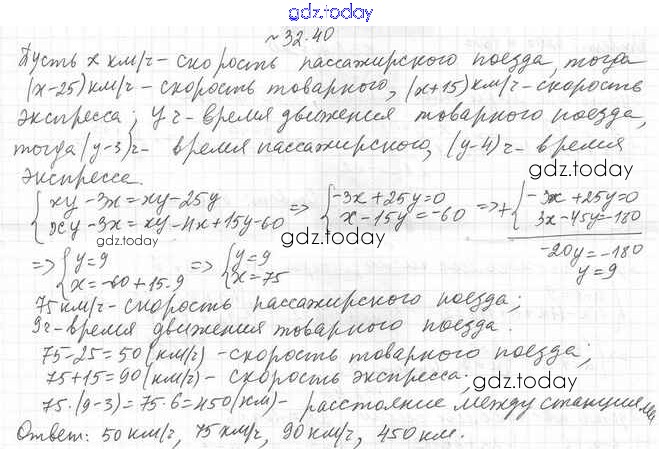 gdz.today
№ 32.40
Пусть x км/ч - скорость пассажирского поезда, тогда
(x-25) км/ч - скорость товарного, (x+15) км/ч - скорость
экспресса; y ч - время движения товарного поезда,
тогда (y-3) ч - время пассажирского, (y-4) ч - время
экспресса.
gdz.today
{xy - 3x = xy - 25y => {-3x + 25y = 0 => + {-3x + 25y = 0
{xy - 3x = xy - 4x + 15y - 60 {x - 15y = -60 {3x - 45y = -180
gdz.today gdz.today gdz.today
-20y = -180
y = 9
=> {y = 9 => {y = 9
{x = -60 + 15·9 {x = 75
75 км/ч - скорость пассажирского поезда;
9 ч - время движения товарного поезда.
75-25 = 50 (км/ч) - скорость товарного поезда;
75+15 = 90 (км/ч) - скорость экспресса;
gdz.today
75·(9-3) = 75·6 = 450 (км) - расстояние между станциями
Ответ: 50 км/ч, 75 км/ч, 90 км/ч, 450 км.
gdz.today